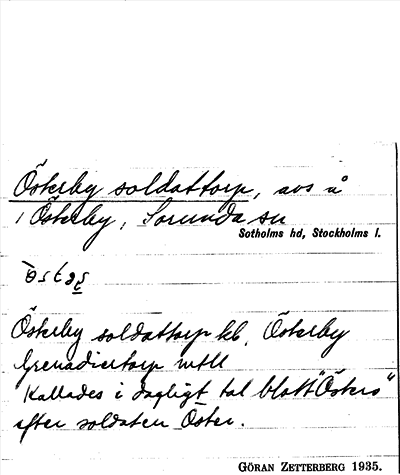 Österby soldattorp, avs å
i Österby, Sorunda sn
Sotholms hd, Stockholms l.
Österby soldattorp kb, Österby
Grenadiertorp mtll
Kallades i dagligt tal blott "Östers"
efter soldaten Öster.
GÖRAN ZETTERBERG 1935.